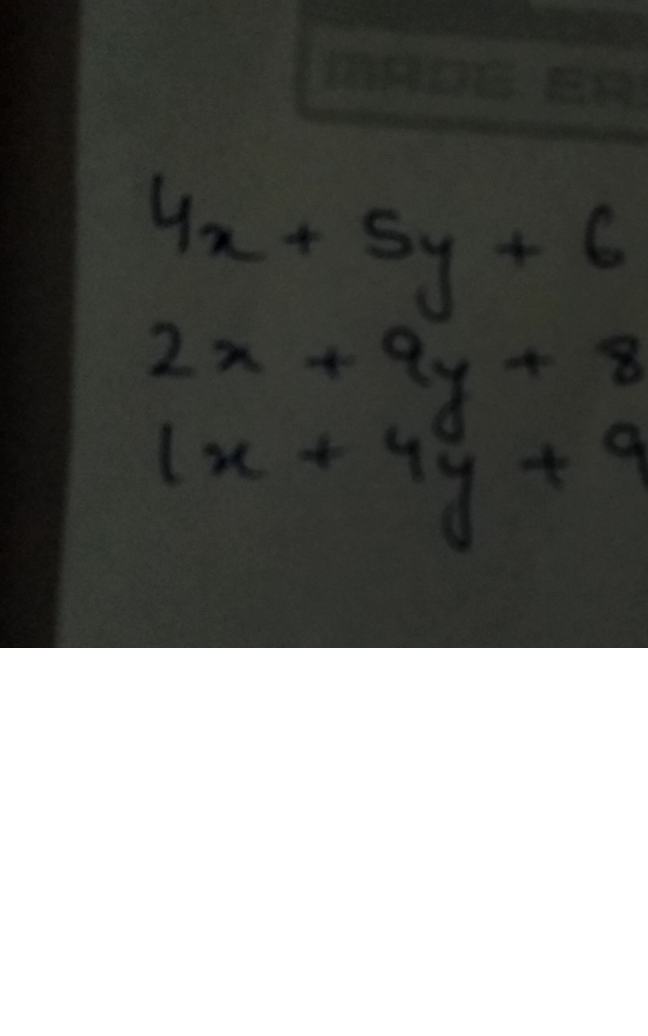 MADE EAS
4x + 5y + 6
2x + 9y + 8
1x + 4y + 9